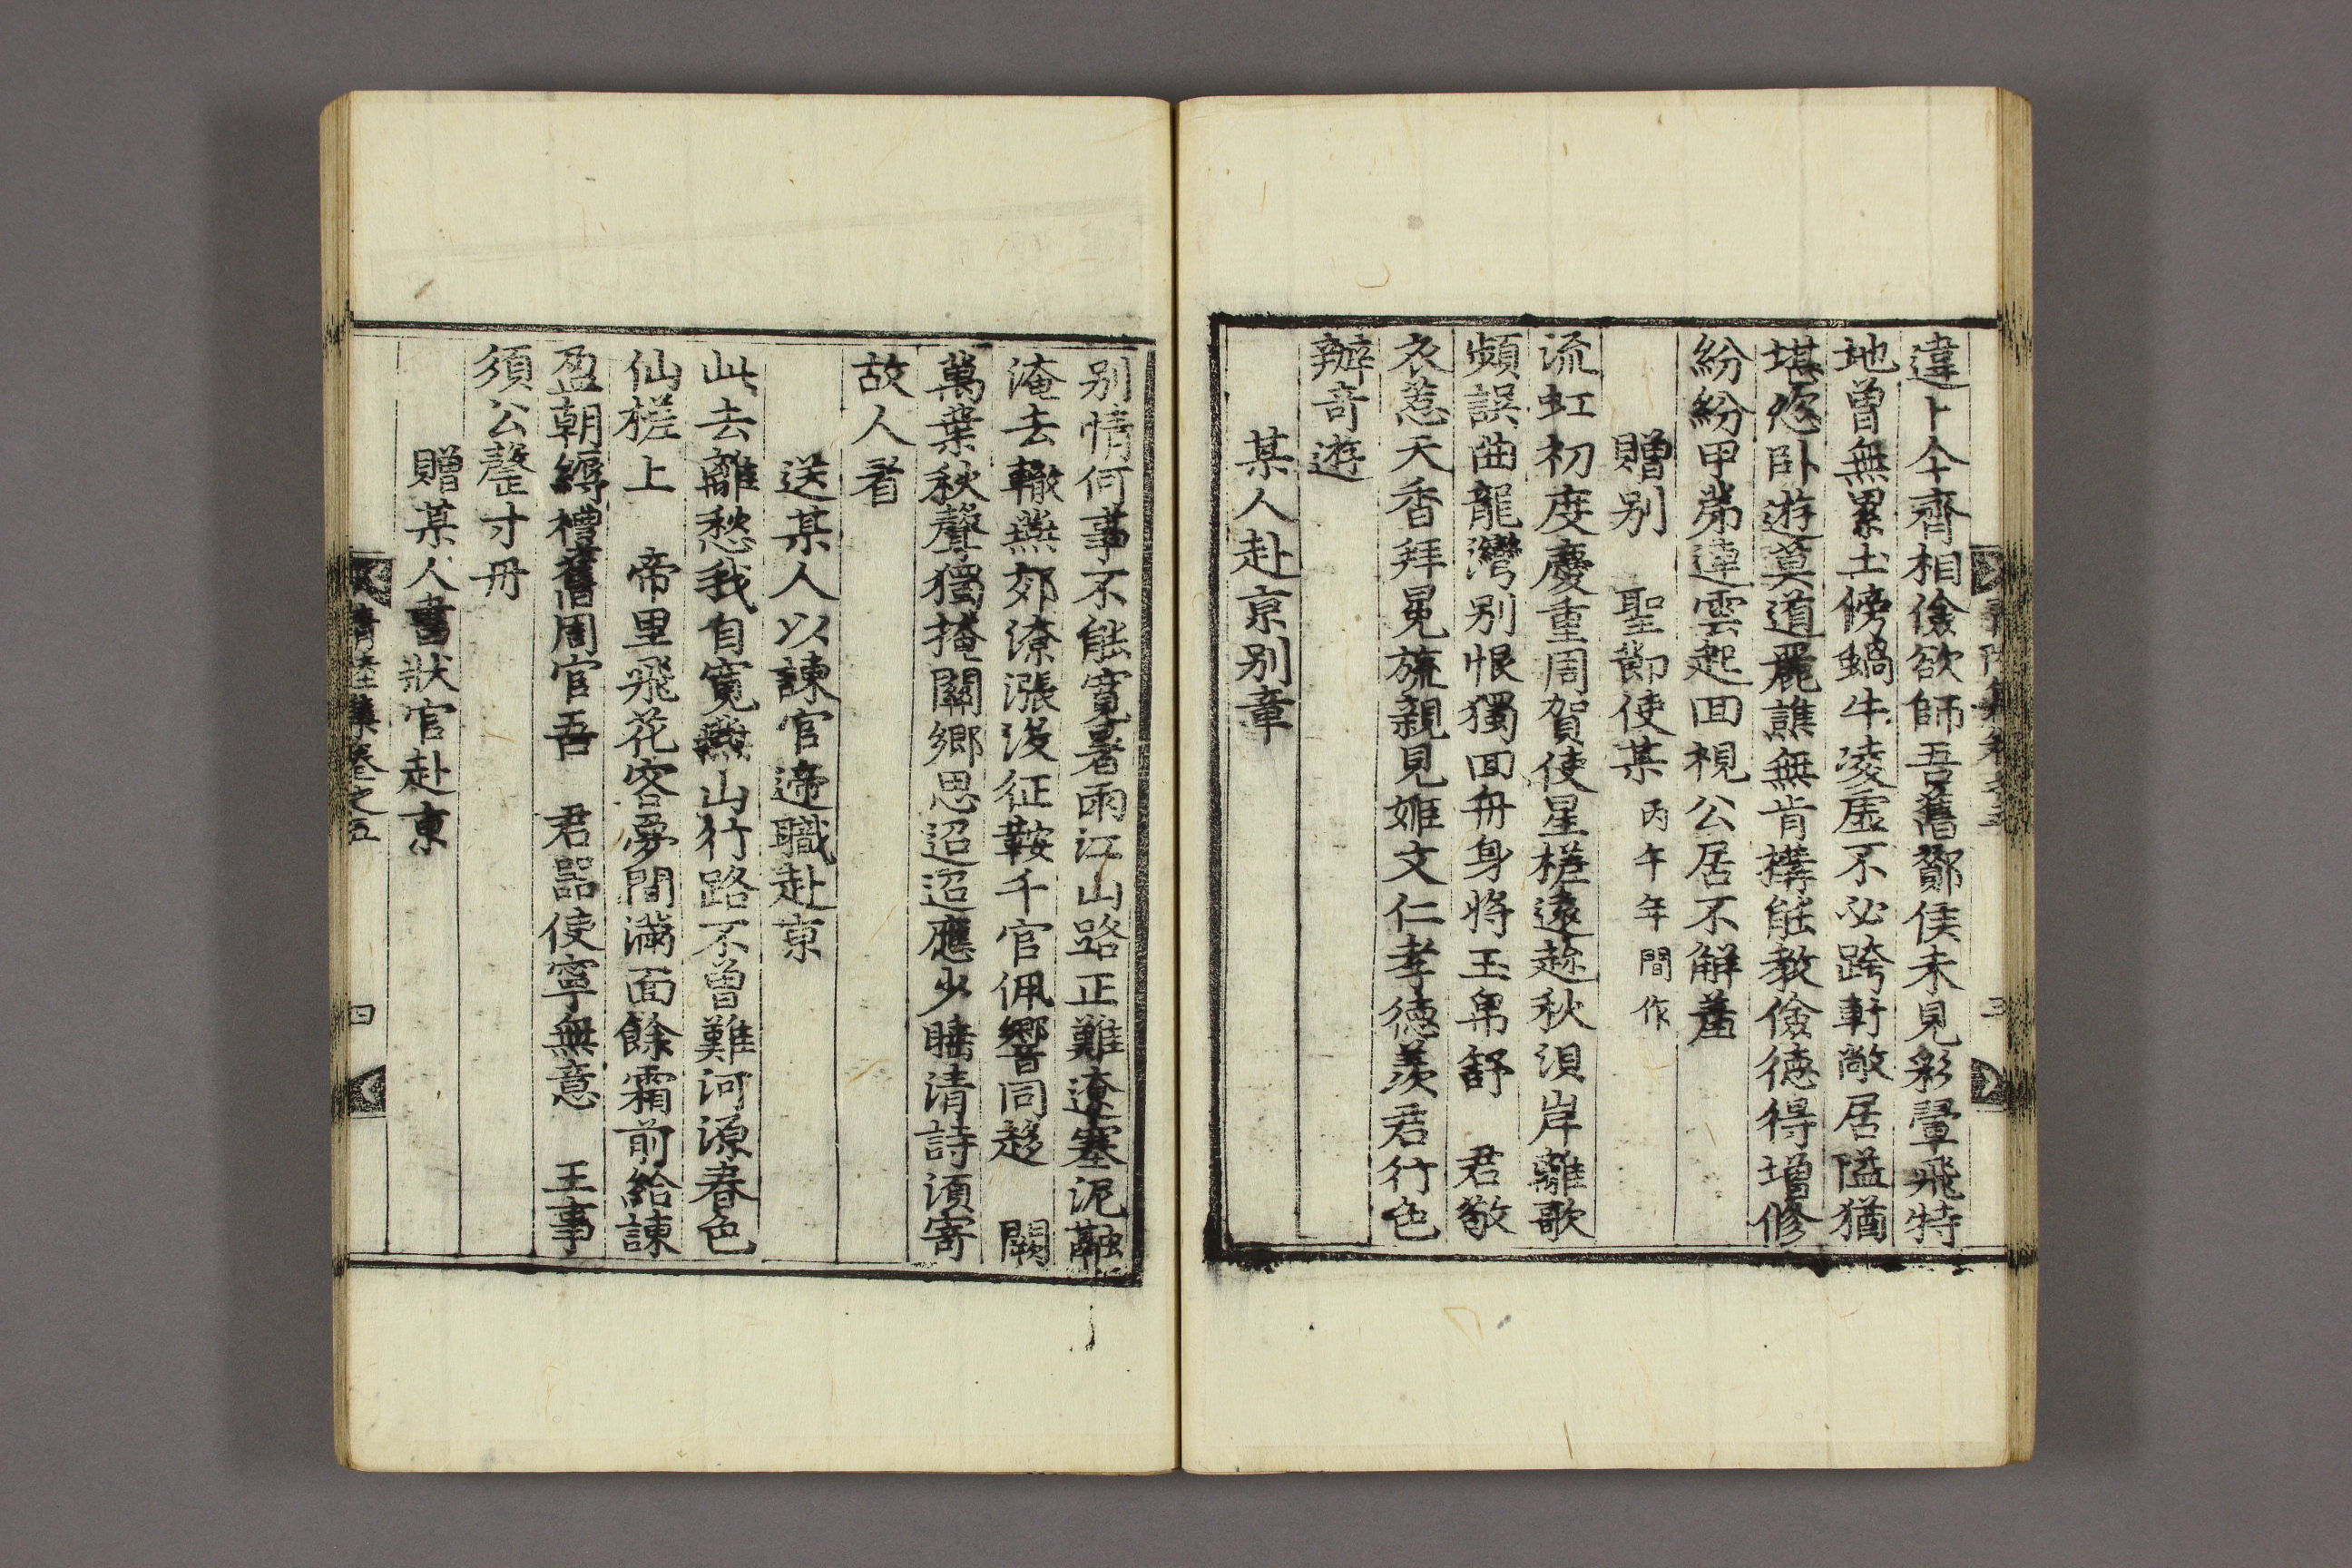 違卜今齊相儉欲師吾舊鄭侯未見彩翬飛特
地曾無累土傍蝸牛凌虛不必跨軒敞居隘猶
堪恣臥遊莫道麗譙無肯構能教儉德得增修
紛紛甲第連雲起回視公居不解羞
贈別 聖節使某 丙午年間作
流虹初度慶重周賀使星槎遠趂秋浿岸離歌
頻誤曲龍灣別恨獨回舟身將玉帛舒 君敬
衣惹天香拜冕旒親見姬文仁孝德羨君行色
辦奇遊
某人赴京別章
別情何事不能寬暑雨江山路正難遼塞泥融
淹去轍燕郊潦漲沒征鞍千官佩響同趍 闕
萬葉秋聲獨掩關鄉思迢迢應少睡清詩須寄
故人看
送某人以諫官遞職赴京
此去離愁我自寬燕山行路不曾難河源春色
仙槎上 帝里飛花客夢間滿面餘霜前給諫
盈朝縟禮舊周官吾 君器使寧無意 王事
須公整寸丹
贈某人書狀官赴京
青陸集卷之五
四
三